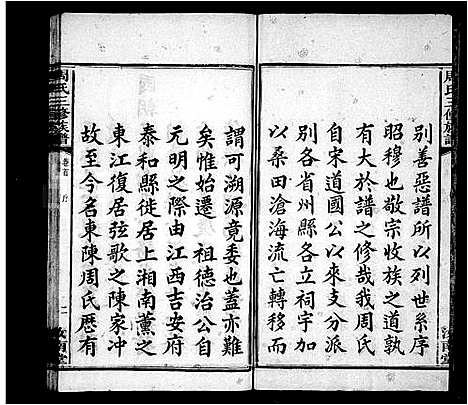 周氏三修族譜
別善惡譜所以列世系序
昭穆也敬宗收族之道孰
有大於譜之修哉我周氏
自宋道國公以來支分派
別各省州縣各立祠宇加
以桑田滄海流亡轉移而
謂可溯源竟委也蓋亦難
矣惟始遷　祖德治公自
元明之際由江西吉安府
泰和縣徙居上湘南薰之
東江復居弦歌之陳家冲
故至今名東陳周氏歷有
周氏三修族譜
卷首
序
一
汝南堂